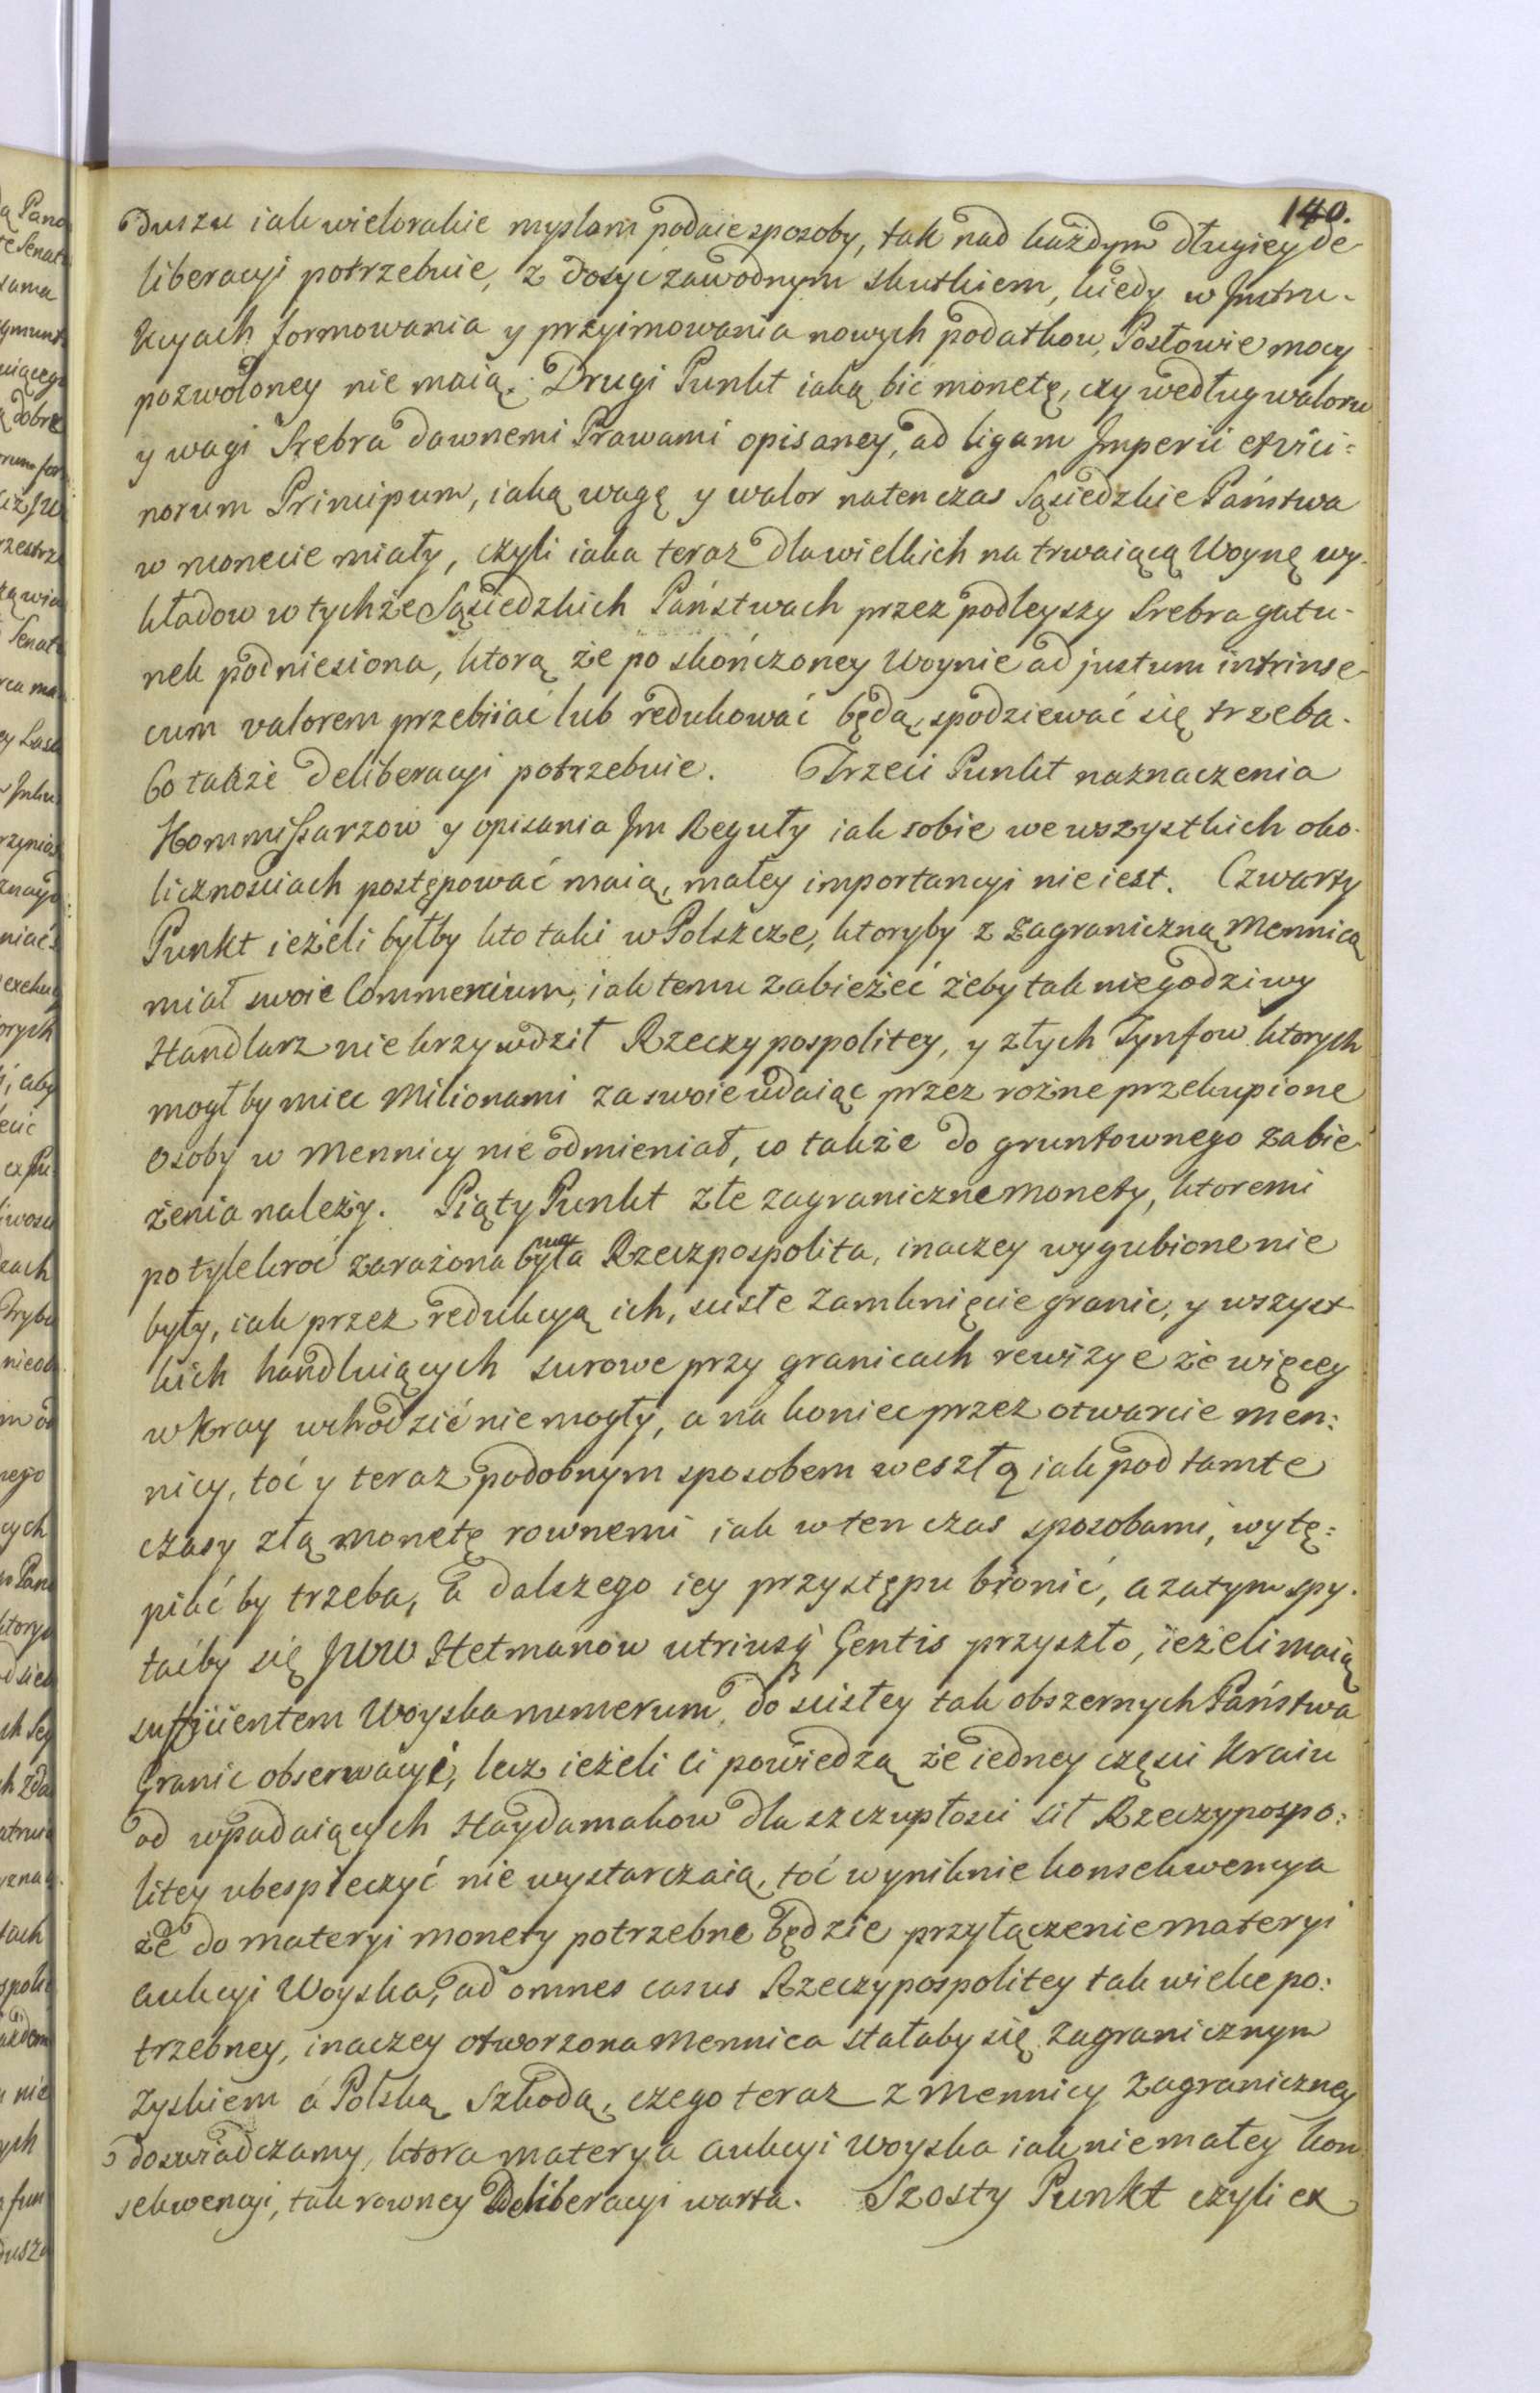 140.
duszu iak wielorakie myslom podaie sposoby, tak nad każdym długiey de-
liberacyi potrzebuie, z dosyć zawodnym skutkiem, kiedy w Instru-
kcyach formowania y przyimowania nowych podatkow, Posłowie mocy
pozwoloney nie maią. Drugi Punkt iaką bić monetę, czy według waloru
y wagi Srebra dawnemi Prawami opisaney, ad ligam Imperii et vici=
norum Principum, iaką wagę y walor natenczas Sąsiedzkie Państwa
w monecie miały, czyli iaka teraz dla wielkich na trwaiącą Woynę wy-
kładow w tychże Sąsiedzkich Państwach przez podleyszy Srebra gatu-
nek podniesiona, ktorą że po skończoney Woynie ad justum intrinse-
cum valorem przebiiać lub redukować będą, spodziewać się trzeba.
Co także deliberacyi potrzebuie. Trzeci Punkt naznaczenia
Kommissarzow y opisania Im Reguły iak sobie we wszystkich oko-
licznosciach postępować maią, małey importancyi nie iest. Czwarty
Punkt ieżeli byłby kto taki w Polszcze, ktoryby z Zagraniczną Mennicą
miał swoie Commercium, iak temu zabieżeć żeby tak niegodziwy
Handlarz nie krzywdził Rzeczypospolitey, y złych Tynfow ktorych
mogł by miec Milionami za swoie udaiąc przez rożne przekupione
osoby w Mennicy nie odmieniał, co także do gruntownego zabie-
żenia należy. Piąty Punkt złe zagraniczne monety, ktoremi
po tylekroć zarażona była Rzeczpospolita, inaczey wygubione nie
były, iak przez redukcyą ich, scisłe zamknięcie granic, y wszyst-
kich handluiących surowe przy granicach rewizye że więcey
w kray wchodzić nie mogły, a na koniec przez otwarcie men=
nicy, toć y teraz podobnym sposobem weszłą iak pod tamte
czasy złą monetę rownemi iak w ten czas sposobami, wytę=
piać by trzeba, a dalszego iey przystępu bronić, a zatym spy-
taćby się JWW Hetmanow utriusq Gentis przyszło, ieżeli maią
sufficientem Woyska numerum, do scisłey tak obszernych Państwa
Granic obserwacyi, lecz ieżeli ci powiedzą że iedney częsci Kraiu
od wpadaiących Haydamakow dla szczupłosci sił Rzeczypospo=
litey ubespieczyć nie wystarczaią, toć wyniknie konsekwencya
że do materyi monety potrzebne będzie przyłączenie materyi
aukcyi Woyska, ad omnes casus Rzeczypospolitey tak wielce po=
trzebney, inaczey otworzona Mennica stałaby się zagranicznym
zyskiem á Polską Szkodą, czego teraz z Mennicy zagraniczney
doswiadczamy, ktora materya aukcyi woyska iak nie małey kon
sekwencyi, tak rowney Deliberacyi warta. Szosty Punkt czyli ex